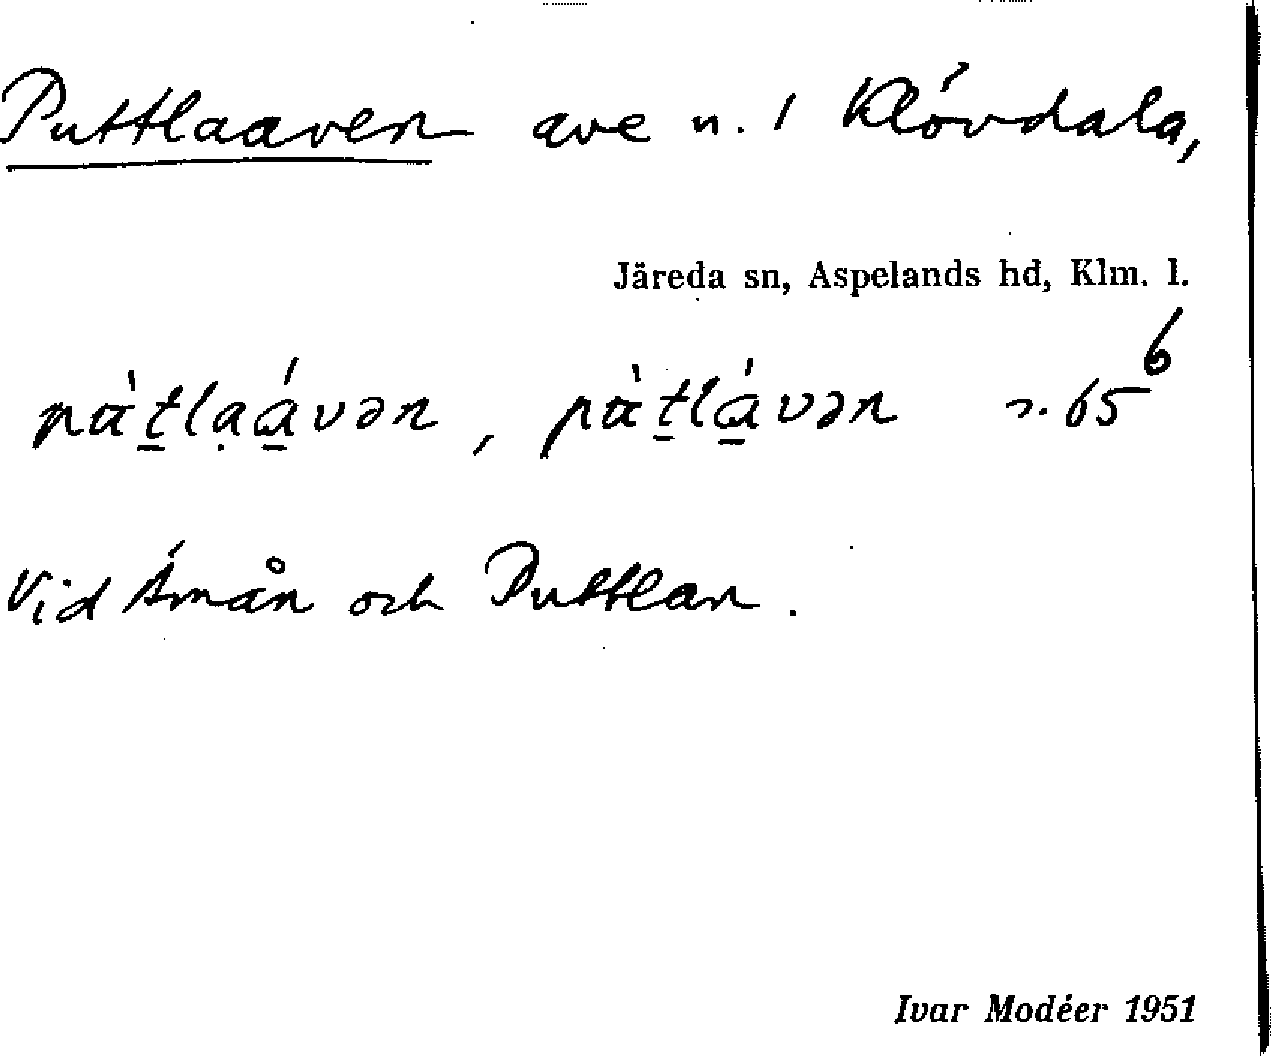 Puttlaaven ave n. 1 Klövdala,
Järeda sn, Aspelands hd, Klm. l.
pɑ̀t̠lạɑ̠́vən, pɑ̀t̠lɑ̠́vən s. 65⁶
Vid Åmån och Puttlan.
Ivar Modéer 1951